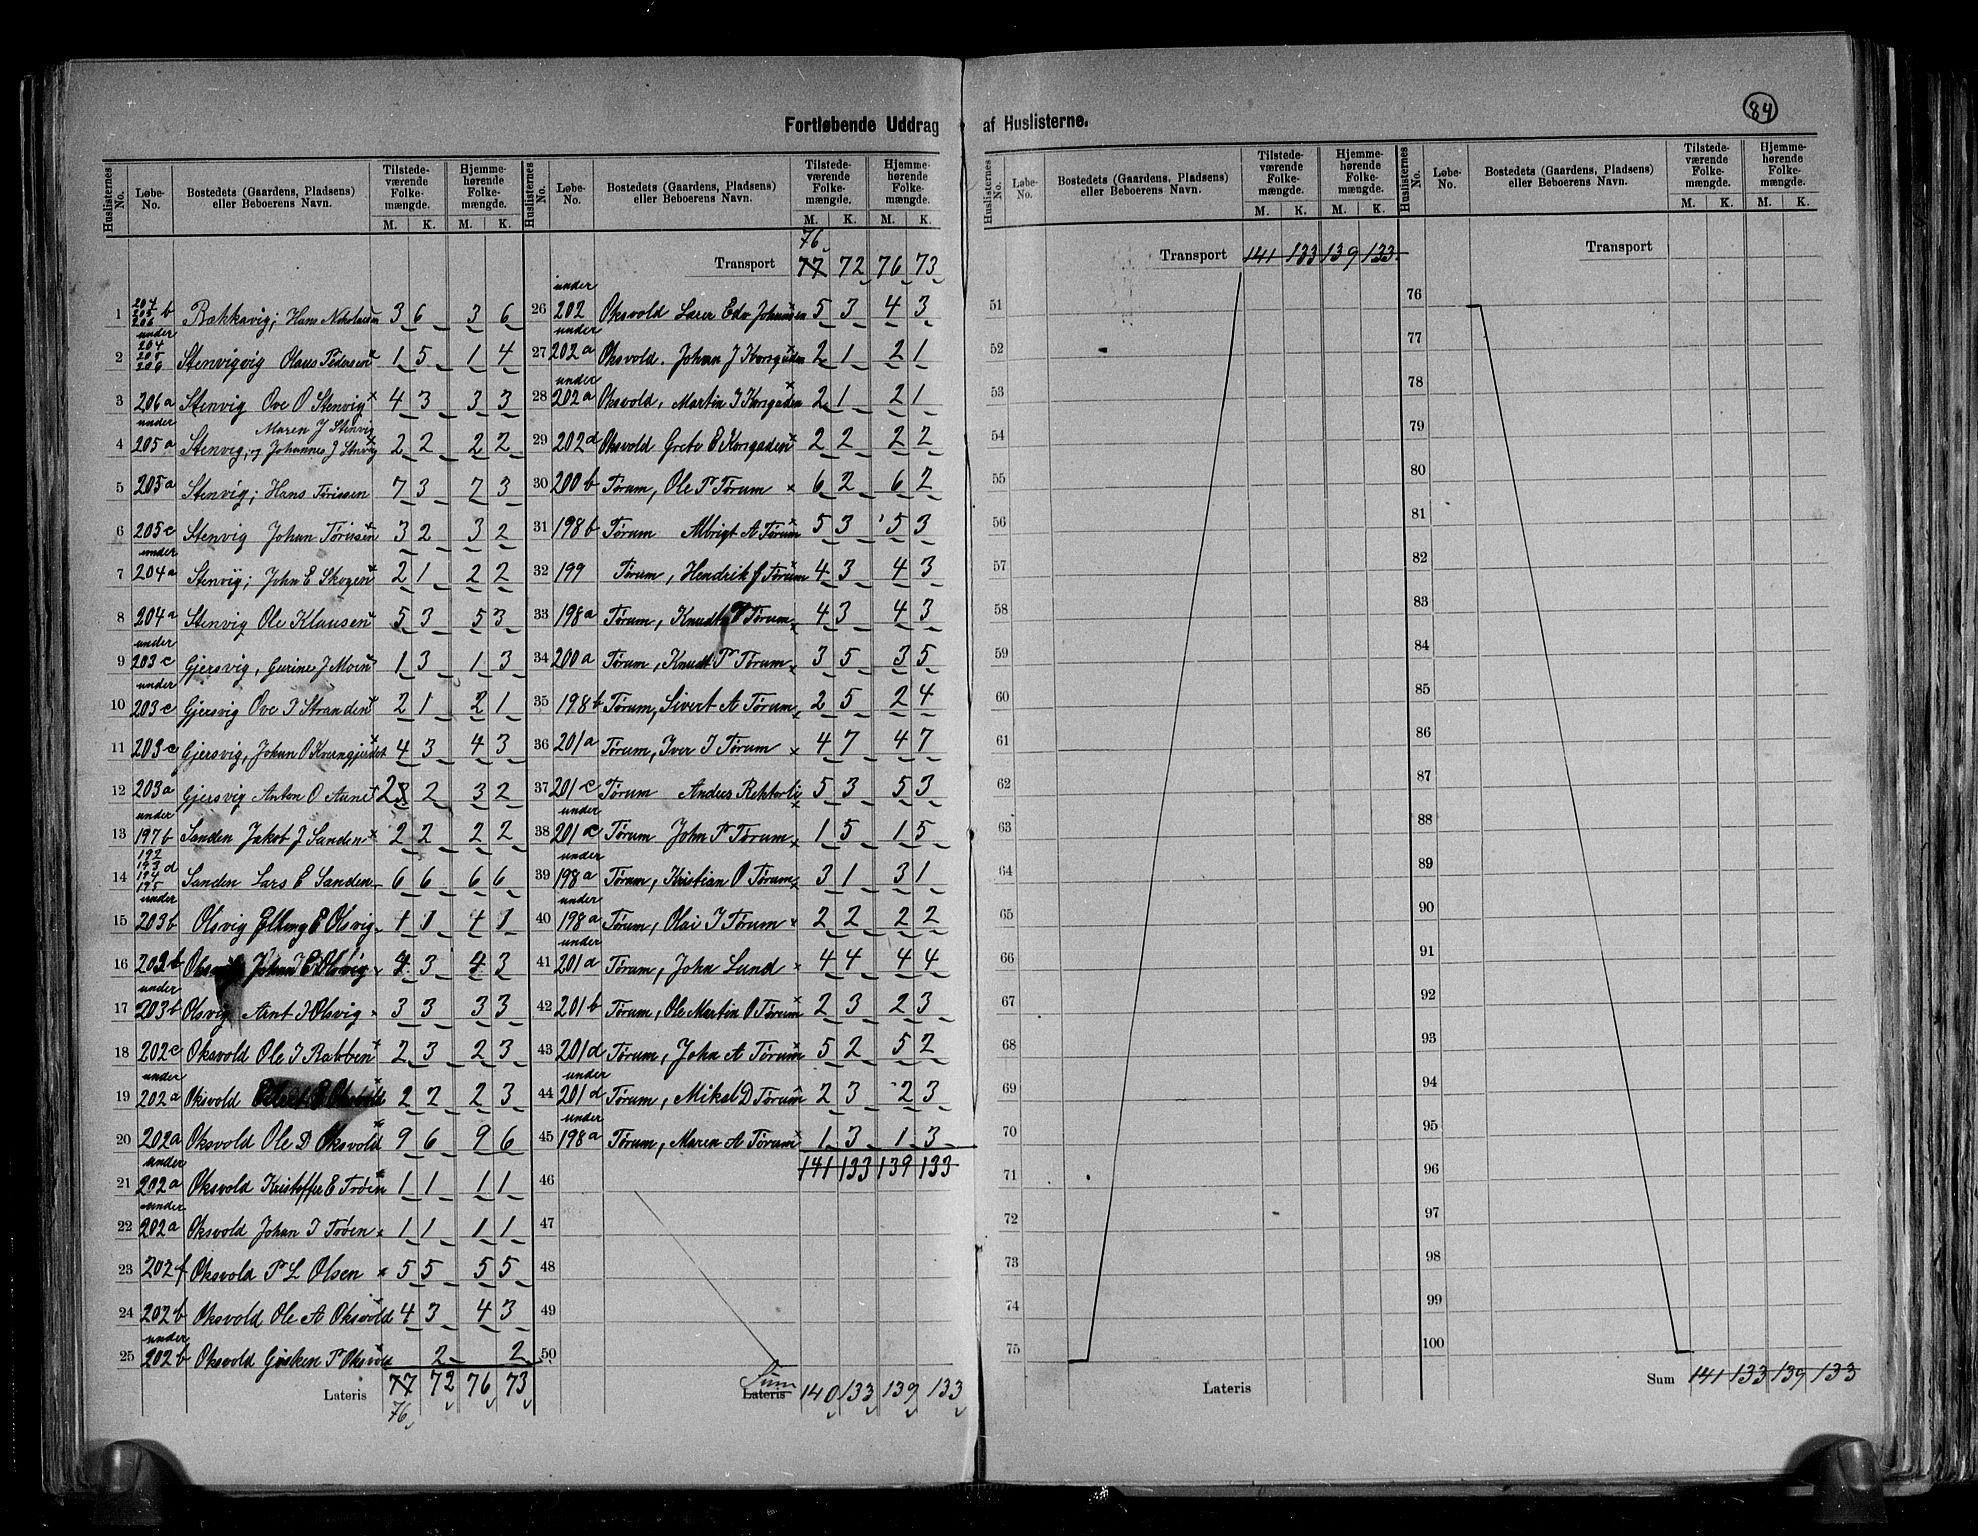 84
Fortløbende Uddrag af Huslisterne.
Huslisternes No. Løbe-No. Bostedets (Gaardens, Pladsens) eller Beboerens Navn. Tilstedeværende Folkemængde. M. K. Hjemmehørende Folkemængde. M. K.
1 204 205 206 b Rækkavig; Hans Nikolaisen 3 6 3 6
2 under 204 205 206 Stenvigvig Olaus Pedersen 1 5 1 4
3 206a Stenvig Ove O Stenvig 4 3 3 3
Maren J Stenvig
4 under 205a Stenvig; Johannes J Stenvig 2 2 2 2
5 205a Stenvig; Hans Tørissen 7 3 7 3
6 205c Stenvig Johan Tørissen 3 2 3 2
7 under 204a Stenvig; John E Skogen 2 1 2 2
8 204a Stenvig Ole Klausen 5 3 5 3
9 under 203c Gjersvig, Gurine J Moen 1 3 1 3
10 under 203c Gjersvig Ove I Stranden 2 1 2 1
11 203c Gjersvig, Johan O Kverngjerdet 4 3 4 3
12 203a Gjersvig Anton O Aune 2 2 3 2
13 under 197b Sanden Jakob J Sanden 2 2 2 2
14 192 193 194 195 d Sanden Lars E Sanden 6 6 6 6
15 under 203b Olsvig Elling E Olsvig 1 1
16 203b Olsvig Johan E Olsvig 4 3 4 3
17 under 203b Olsvig Arnt J Olsvig 3 3 3 3
18 202c Oksvold Ole I Rabben 2 3 2 3
19 under 202a Oksvold 2 2 2 3
20 202a Oksvold Ole D Oksvold 9 6 9 6
21 under 202a Oksvold Kristoffer E Trøen 1 1 1 1
22 under 202a Oksvold Johan I Trøen 1 1 1 1
23 202f Oksvold P L Olsen 5 5 5 5
24 202b Oksvold Ole A Oksvold 4 3 4 3
25 under 202b Oksvold Gjøsken P Oksvold 2 2
Lateris 77 72 76 73
76
Huslisternes No. Løbe-No. Bostedets (Gaardens, Pladsens) eller Beboerens Navn. Tilstedeværende Folkemængde. M. K. Hjemmehørende Folkemængde. M. K.
76
Transport 77 72 76 73
26 under 202 Oksvold Laser Edv Johansen 5 3 4 3
27 under 202a Oksvold. Johan J Korsgaden 2 1 2 1
28 under 202a Oksvold, Martin I Korsgaden 2 1 2 1
29 202d Oksvold Grete E Korsgaden 2 2 2 2
30 200b Tørum, Ole P Tørum 6 2 6 2
31 198b Tørum Albrigt A Tørum 5 3 5 3
32 199 Tørum, Hendrik J Tørum 4 3 4 3
33 198a Tørum, Knudt Tørum 4 3 4 3
34 200a Tørum, Knudt P Tørum 3 5 3 5
35 198b Tørum, Sivert A Tørum 2 5 2 4
36 201a Tørum, Iver I Tørum 4 7 4 7
37 201c Tørum Anders Rektorli 5 3 5 3
38 under 201c Tørum John P Tørum 1 5 1 5
39 under 198a Tørum, Kristian O Tørum 3 1 3 1
40 under 198a Tørum, Olai I Tørum 2 2 2 2
41 under 201d Tørum, John Lund 4 4 4 4
42 201b Tørum, Ole Martin O Tørum 2 3 2 3
43 201d Tørum, John A Tørum 5 2 5 2
44 under 201d Tørum, Mikal D Tørum 2 3 2 3
45 under 198a Tørum, Maren A Tørum 1 3 1 3
141 133 139 133
46
47
48
49
50
Sum
Lateris 140 133 139 133
Huslisternes No. Løbe-No. Bostedets (Gaardens, Pladsens) eller Beboerens Navn. Tilstedeværende Folkemængde. M. K. Hjemmehørende Folkemængde. M. K.
Transport 141 133 139 133
51
52
53
54
55
56
57
58
59
60
61
62
63
64
65
66
67
68
69
70
71
72
73
74
75
Lateris
Huslisternes No. Løbe-No. Bostedets (Gaardens, Pladsens) eller Beboerens Navn. Tilstedeværende Folkemængde. M. K. Hjemmehørende Folkemængde. M. K.
Transport
76
77
78
79
80
81
82
83
84
85
86
87
88
89
90
91
92
93
94
95
96
97
98
99
100
Sum 141 133 139 133